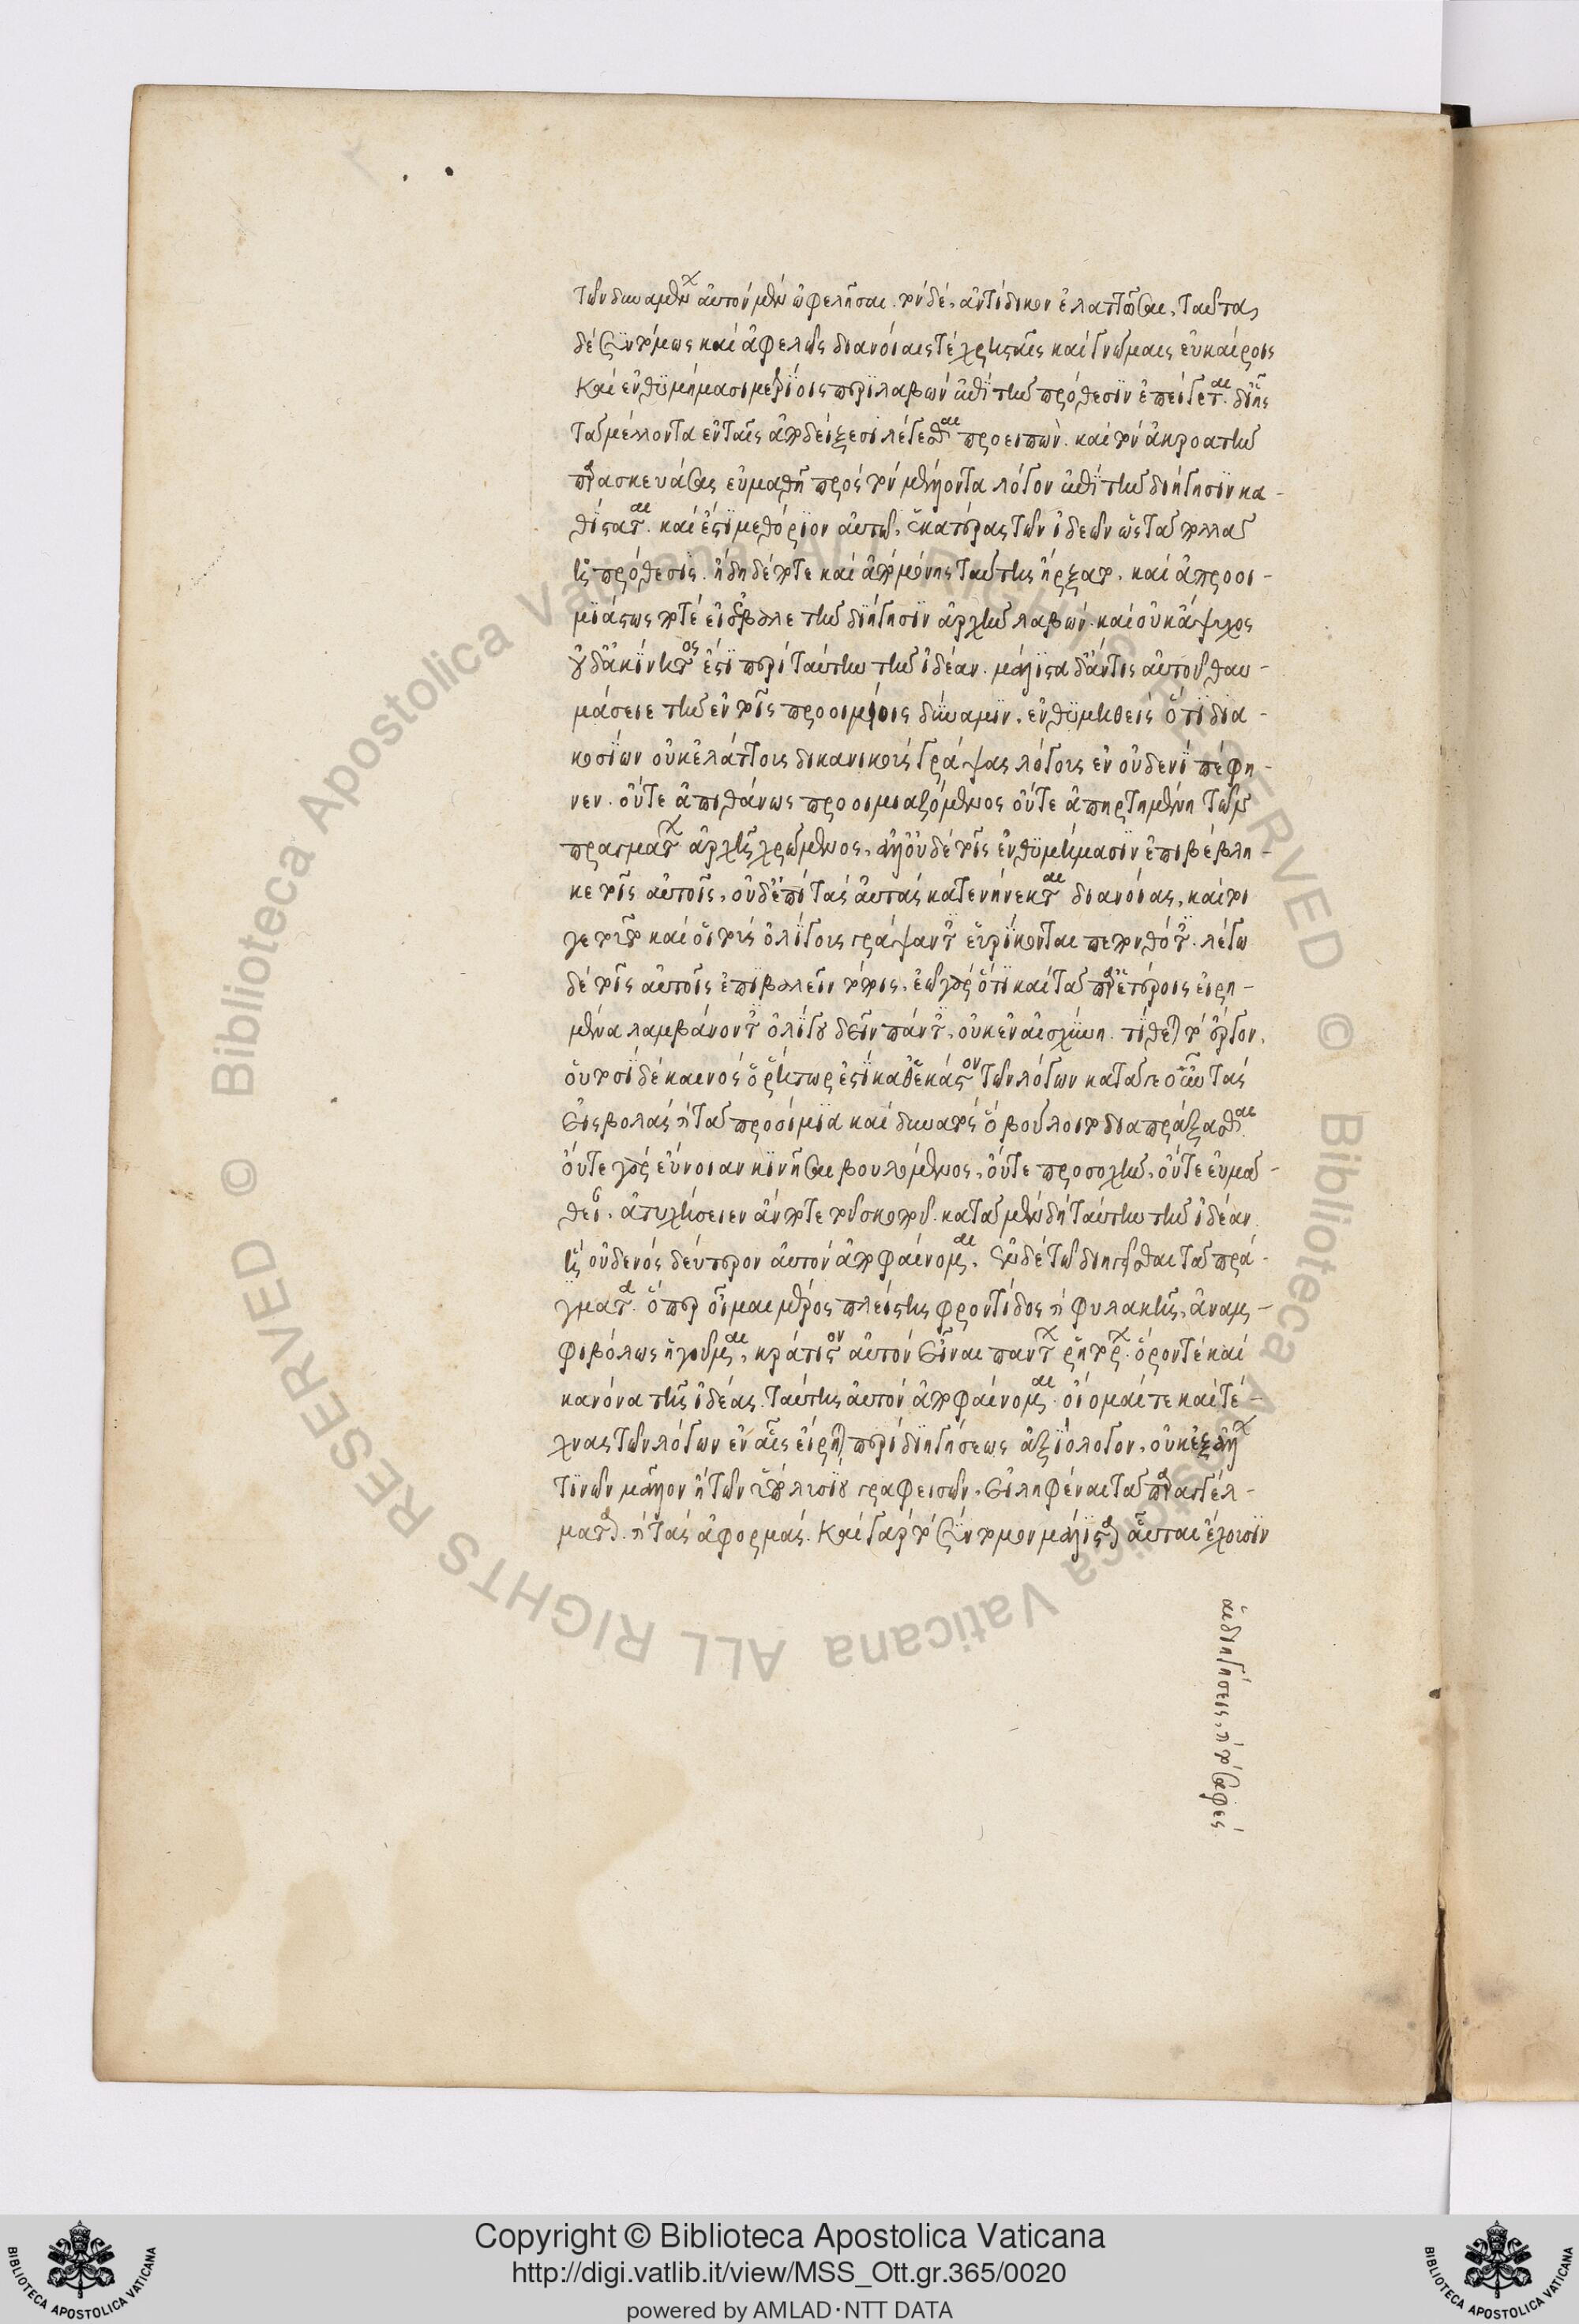 τῶν δυναμένων αὐτὸν μὲν ὠφελῆσαι. τὸν δὲ, ἀντίδικον ἐλαττῶσαι, ταῦτα
δὲ συντόμως καὶ ἀφελῶς διανοίαις τὲ χρησταῖς καὶ γνώμαις εὐκαίροις
καὶ ἐνθυμήμασι μετρίοις περιλαβὼν ἐπὶ τὴν πρόθεσιν ἐπείγεται. δι' ἧς
τὰ μέλλοντα ἐν ταῖς ἀποδείξεσι λέγεσθαι προειπὼν. καὶ τὸν ἀκροατὴν
παρασκευάσας εὐμαθῆ πρὸς τὸν μέλλοντα λόγον ἐπὶ τὴν διήγησιν κα-
θίσταται. καὶ ἔστι μεθόριον αὐτῶ, ἑκατέρας τῶν ἰδεῶν ὡς τὰ πολλὰ
ἡ πρόθεσις. ἤδη δέ ποτε καὶ ἀπὸ μόνης ταύτης ἤρξατο, καὶ ἀπροοι-
μιάστως ποτὲ εἰσέβαλε τὴν διήγησιν ἀρχὴν λαβών. καὶ οὐκ ἄψυχος
οὐδ' ἀκίνητος ἐστὶ περὶ ταύτην τὴν ἰδέαν. μάλιστα δ' ἄν τις αὐτοῦ θαυ-
μάσειε τὴν ἐν τοῖς προοιμίοις δύναμιν, ἐνθυμηθεὶς ὅτι δια-
κοσίων οὐκ ἐλάττους δικανικοὺς γράψας λόγους ἐν οὐδενὶ πέφη-
νεν. οὔτε ἀπιθάνως προοιμιαζόμενος οὔτε ἀπηρτημένη τῶν
πραγμάτων ἀρχῆ χρώμενος, ἀλλ' οὐδὲ τοῖς ἐνθυμήμασιν ἐπιβέβλη-
κε τοῖς αὐτοῖς, οὐδ' ἐπὶ τὰς αὐτὰς κατενήνεκται διανοίας, καίτοι
γε τοῦτο καὶ οἱ τοὺς ὀλίγους γράψαντες εὑρίσκονται πεπονθότες. λέγω
δὲ τοῖς αὐτοῖς ἐπιβαλεῖν τόποις, ἐῶ γὰρ ὅτι καὶ τὰ παρ' ἑτέροις εἰρη-
μένα λαμβάνοντες ὀλίγου δεῖν πάντες, οὐκ ἐν αἰσχύνη. τίθενται τὸ ἔργον.
οὑτοσὶ δὲ καινὸς ὁ ῥήτωρ ἐστὶ καθ' ἕκαστον τῶν λόγων κατά γε οὖν τὰς
εἰσβολὰς καὶ τὰ προοίμια καὶ δυνατὸς ὃ βούλοιτο διαπράξασθαι
οὔτε γὰρ εὔνοιαν κινῆσαι βουλόμενος, οὔτε προσοχὴν, οὔτε εὐμά-
θειαν, ἀτυχήσειεν ἄν ποτε τοῦ σκοποῦ. κατὰ μὲν δὴ ταύτην τὴν ἰδέαν
ἢ οὐδενὸς δεύτερον αὐτὸν ἀποφαίνομαι, ἐν δὲ τῶ διηγεῖσθαι τὰ πρά-
γματα. ὅπερ οἶμαι μέρος πλείστης φροντίδος καὶ φυλακῆς, ἀναμ-
φιβόλως ἡγοῦμαι, κράτιστον αὐτὸν εἶναι πάντων ῥητόρων. ὅρον τὲ καὶ
κανόνα τῆς ἰδέας. ταύτης αὐτὸν ἀποφαίνομαι. οἴομαί τε καὶ τέ-
χνας τῶν λόγων ἐν αἷς εἴρηται περὶ διηγήσεως ἀξιόλογον, οὐκ ἐξ ἄλλων
τινῶν μᾶλλον ἢ τῶν ὑπὸ λυσίου γραφεισῶν, εἰληφέναι τὰ παραγγέλ-
ματα. καὶ τὰς ἀφορμάς. καὶ γὰρ τὸ σύντομον μάλιστα αὗται ἔχουσιν
αἱ διηγήσεις, καὶ τὸ σαφές
Copyright © Biblioteca Apostolica Vaticana
http://digi.vatlib.it/view/MSS_Ott.gr.365/0020
powered by AMLAD·NTT DATA
© Biblioteca Apostolica Vaticana ALL RIGHTS RESERVED © Biblioteca Apostolica Vaticana ALL RIGHTS RESERVED
BIBLIOTECA APOSTOLICA VATICANA
BIBLIOTECA APOSTOLICA VATICANA